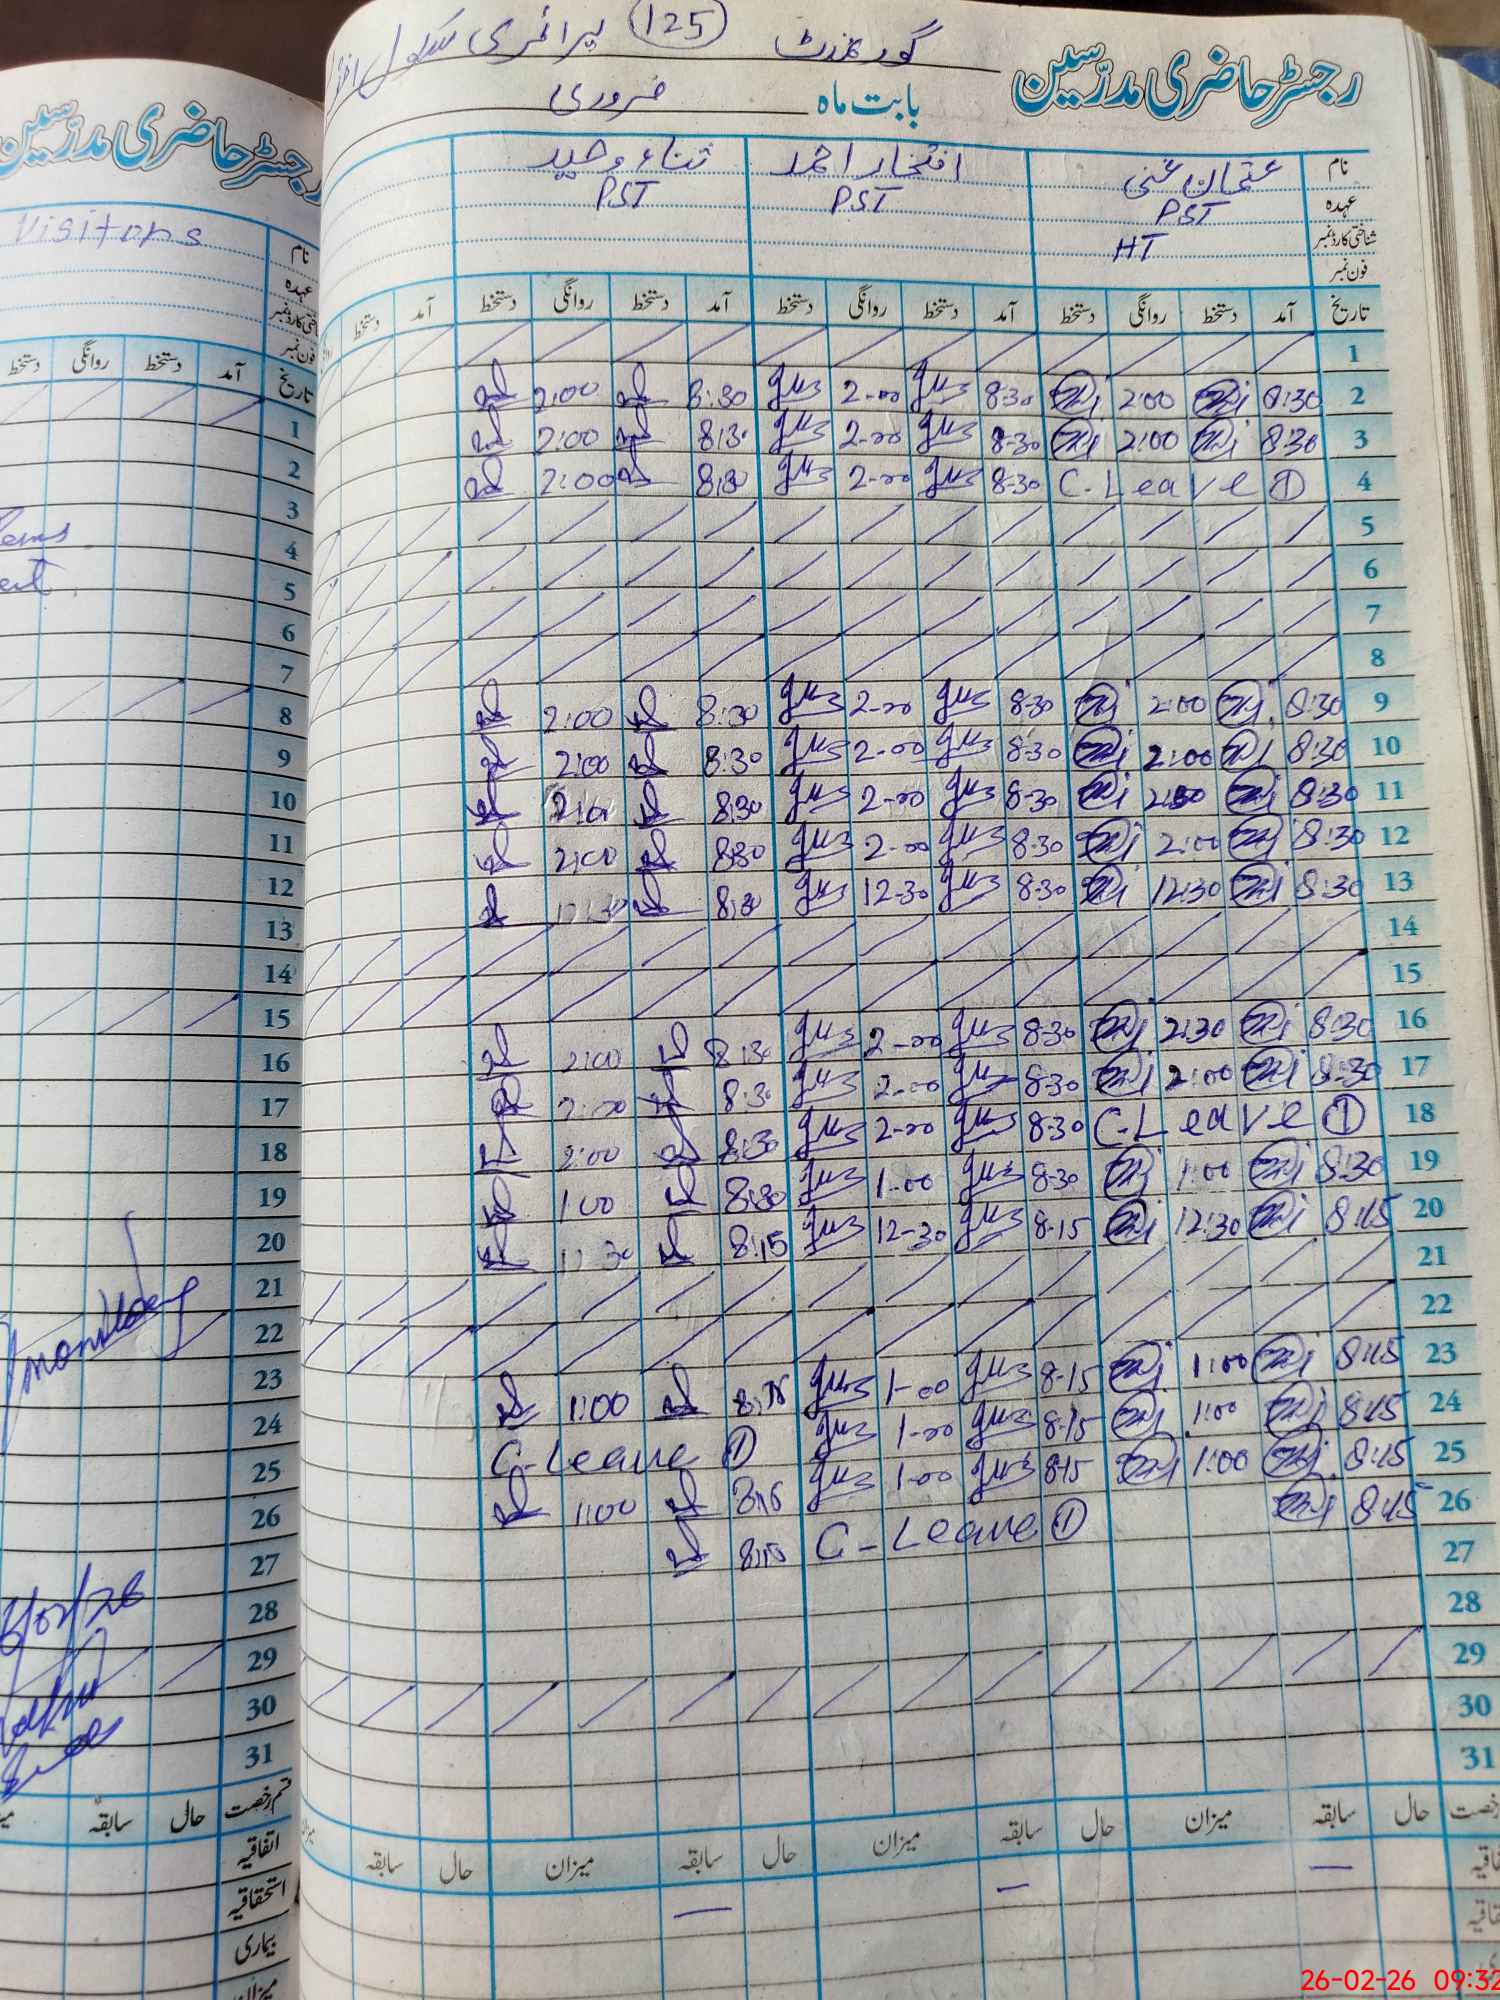 گورنمنٹ (125) پرائمری سکول
رجسٹر حاضری مدرّسین
بابت ماہ فروری
نام عثمان غنی افتخار احمد ثناء وحید
عہدہ PST PST PST
شناختی کارڈ نمبر HT
فون نمبر
تاریخ آمد دستخط روانگی دستخط آمد دستخط روانگی دستخط آمد دستخط روانگی دستخط آمد دستخط
1
2 8:30 2:00 8-30 2-00 8:30 2:00
3 8:30 2:00 8-30 2-00 8:30 2:00
4 C-Leave ① 8-30 2-00 8:30 2:00
5
6
7
8
9 8:30 2:00 8-30 2-00 8:30 2:00
10 8:30 2:00 8-30 2-00 8:30 2:00
11 8:30 8-30 2-00 8:30
12 8:30 2:00 8-30 2-00 8:30 2:00
13 8:30 12:30 8-30 12-30 8:30 12:30
14
15
16 8:30 2:30 8-30 2-00 8:30 2:00
17 8:30 2:00 8-30 2-00 8:30 2:00
18 C-Leave ① 8-30 2-00 8:30 2:00
19 8:30 1:00 8-30 1-00 8:30 1:00
20 8:15 12:30 8-15 12-30 8:15 12:30
21
22
23 8:15 1:00 8-15 1-00 8:15 1:00
24 8:15 1:00 8-15 1-00 C-Leave ①
25 8:15 1:00 8-15 1-00 8:15 1:00
26 8:15 C-Leave ① 8:15
27
28
29
30
31
رخصت حال سابقہ میزان حال سابقہ میزان حال سابقہ میزان حال سابقہ
رجسٹر حاضری مدرّسین
نام Visitors
عہدہ
شناختی کارڈ نمبر
فون نمبر
تاریخ آمد دستخط روانگی دستخط
1
2
3
4
5
6
7
8
9
10
11
12
13
14
15
16
17
18
19
20
21
22
23
24
25
26
27
28
29
30
31
قسم رخصت حال سابقہ
اتفاقیہ
استحقاقیہ
بیماری
میزان
26-02-26 09:32